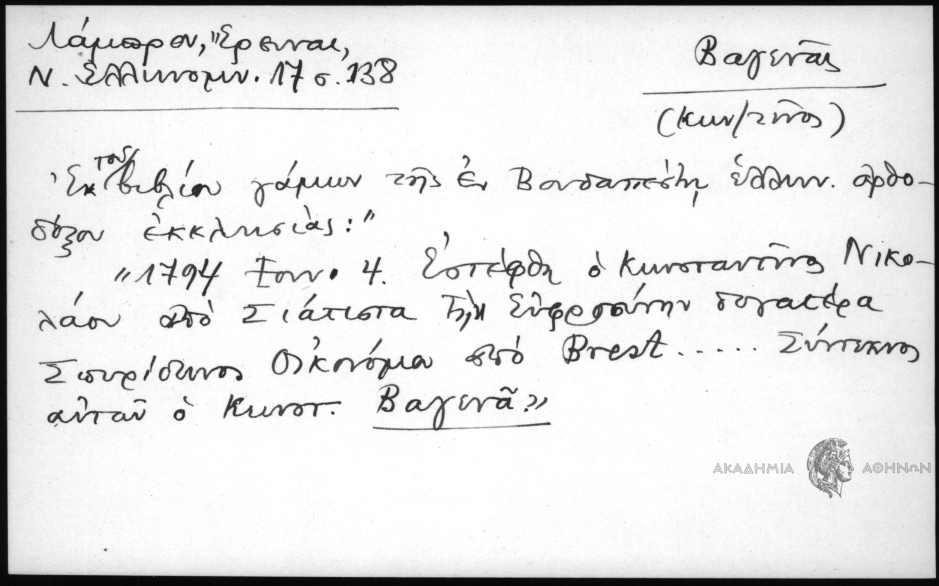 Λάμπρου, "Ερευναι,
Ν. Ελληνομν. 17 σ. 138
Βαγενᾶς
(Κων/τῖνος)
"Ἐκ τοῦ βιβλίου γάμων τῆς ἐν Βουδαπέστῃ ἑλλην. ὀρθο-
δόξου ἐκκλησίας:"
"1794 Ἰουν. 4. Ἐστέφθη ὁ Κωνσταντῖνος Νικο-
λάου ἀπὸ Σιάτιστα τὴν Εὐφροσύνην δογατέρα
Σπυρίδωνος Οἰκονόμου ἀπὸ Brest..... Σύντεκνος
αὐτῶν ὁ Κωνστ. Βαγενᾶ."
ΑΚΑΔΗΜΙΑ ΑΘΗΝΩΝ